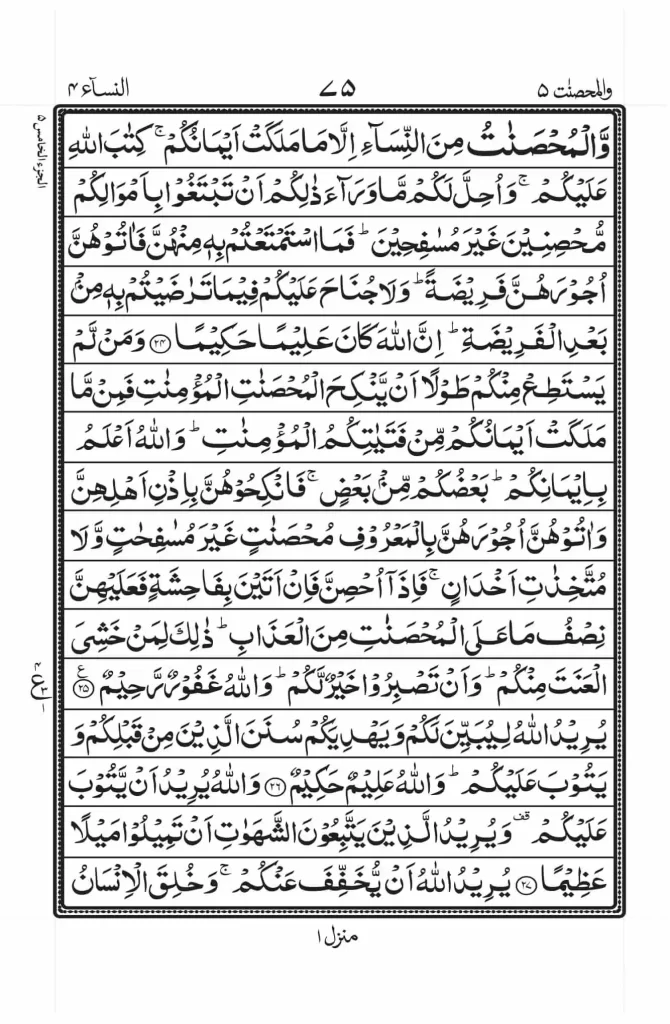 النسآء ۴
۷۵
والمحصنٰت ۵
الجزء الخامس ۵
وَّالْمُحْصَنٰتُ مِنَ النِّسَآءِ اِلَّا مَا مَلَكَتْ اَيْمَانُكُمْ ۚ كِتٰبَ اللّٰهِ
عَلَيْكُمْ ۚ وَاُحِلَّ لَكُمْ مَّا وَرَآءَ ذٰلِكُمْ اَنْ تَبْتَغُوْا بِاَمْوَالِكُمْ
مُّحْصِنِيْنَ غَيْرَ مُسٰفِحِيْنَ ؕ فَمَا اسْتَمْتَعْتُمْ بِهٖ مِنْهُنَّ فَاٰتُوْهُنَّ
اُجُوْرَهُنَّ فَرِيْضَةً ؕ وَلَا جُنَاحَ عَلَيْكُمْ فِيْمَا تَرٰضَيْتُمْ بِهٖ مِنْۢ
بَعْدِ الْفَرِيْضَةِ ؕ اِنَّ اللّٰهَ كَانَ عَلِيْمًا حَكِيْمًا ﴿۲۴﴾ وَمَنْ لَّمْ
يَسْتَطِعْ مِنْكُمْ طَوْلًا اَنْ يَّنْكِحَ الْمُحْصَنٰتِ الْمُؤْمِنٰتِ فَمِنْ مَّا
مَلَكَتْ اَيْمَانُكُمْ مِّنْ فَتَيٰتِكُمُ الْمُؤْمِنٰتِ ؕ وَاللّٰهُ اَعْلَمُ
بِاِيْمَانِكُمْ ؕ بَعْضُكُمْ مِّنْۢ بَعْضٍ ۚ فَانْكِحُوْهُنَّ بِاِذْنِ اَهْلِهِنَّ
وَاٰتُوْهُنَّ اُجُوْرَهُنَّ بِالْمَعْرُوْفِ مُحْصَنٰتٍ غَيْرَ مُسٰفِحٰتٍ وَّلَا
مُتَّخِذٰتِ اَخْدَانٍ ۚ فَاِذَآ اُحْصِنَّ فَاِنْ اَتَيْنَ بِفَاحِشَةٍ فَعَلَيْهِنَّ
نِصْفُ مَا عَلَى الْمُحْصَنٰتِ مِنَ الْعَذَابِ ؕ ذٰلِكَ لِمَنْ خَشِىَ
الْعَنَتَ مِنْكُمْ ؕ وَاَنْ تَصْبِرُوْا خَيْرٌ لَّكُمْ ؕ وَاللّٰهُ غَفُوْرٌ رَّحِيْمٌ ﴿۲۵﴾ ع
يُرِيْدُ اللّٰهُ لِيُبَيِّنَ لَكُمْ وَيَهْدِيَكُمْ سُنَنَ الَّذِيْنَ مِنْ قَبْلِكُمْ وَ
يَتُوْبَ عَلَيْكُمْ ؕ وَاللّٰهُ عَلِيْمٌ حَكِيْمٌ ﴿۲۶﴾ وَاللّٰهُ يُرِيْدُ اَنْ يَّتُوْبَ
عَلَيْكُمْ ۫ وَيُرِيْدُ الَّذِيْنَ يَتَّبِعُوْنَ الشَّهَوٰتِ اَنْ تَمِيْلُوْا مَيْلًا
عَظِيْمًا ﴿۲۷﴾ يُرِيْدُ اللّٰهُ اَنْ يُّخَفِّفَ عَنْكُمْ ۚ وَخُلِقَ الْاِنْسَانُ
منزل ۱